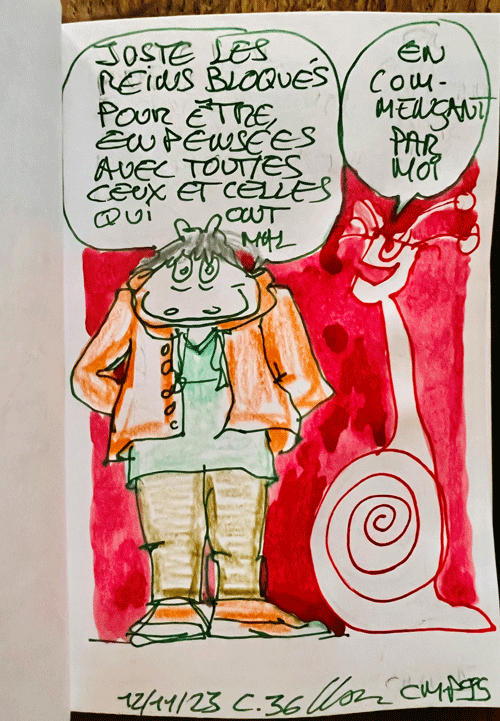 JOSTE LES
REINS BLOQUÉS
POUR ÊTRE
EN PENSÉES
AVEC TOUTES
CEUX ET CELLES
QUI ONT
MAL
EN
COM-
MENÇANT
PAR
MOI
12/11/23 C.36